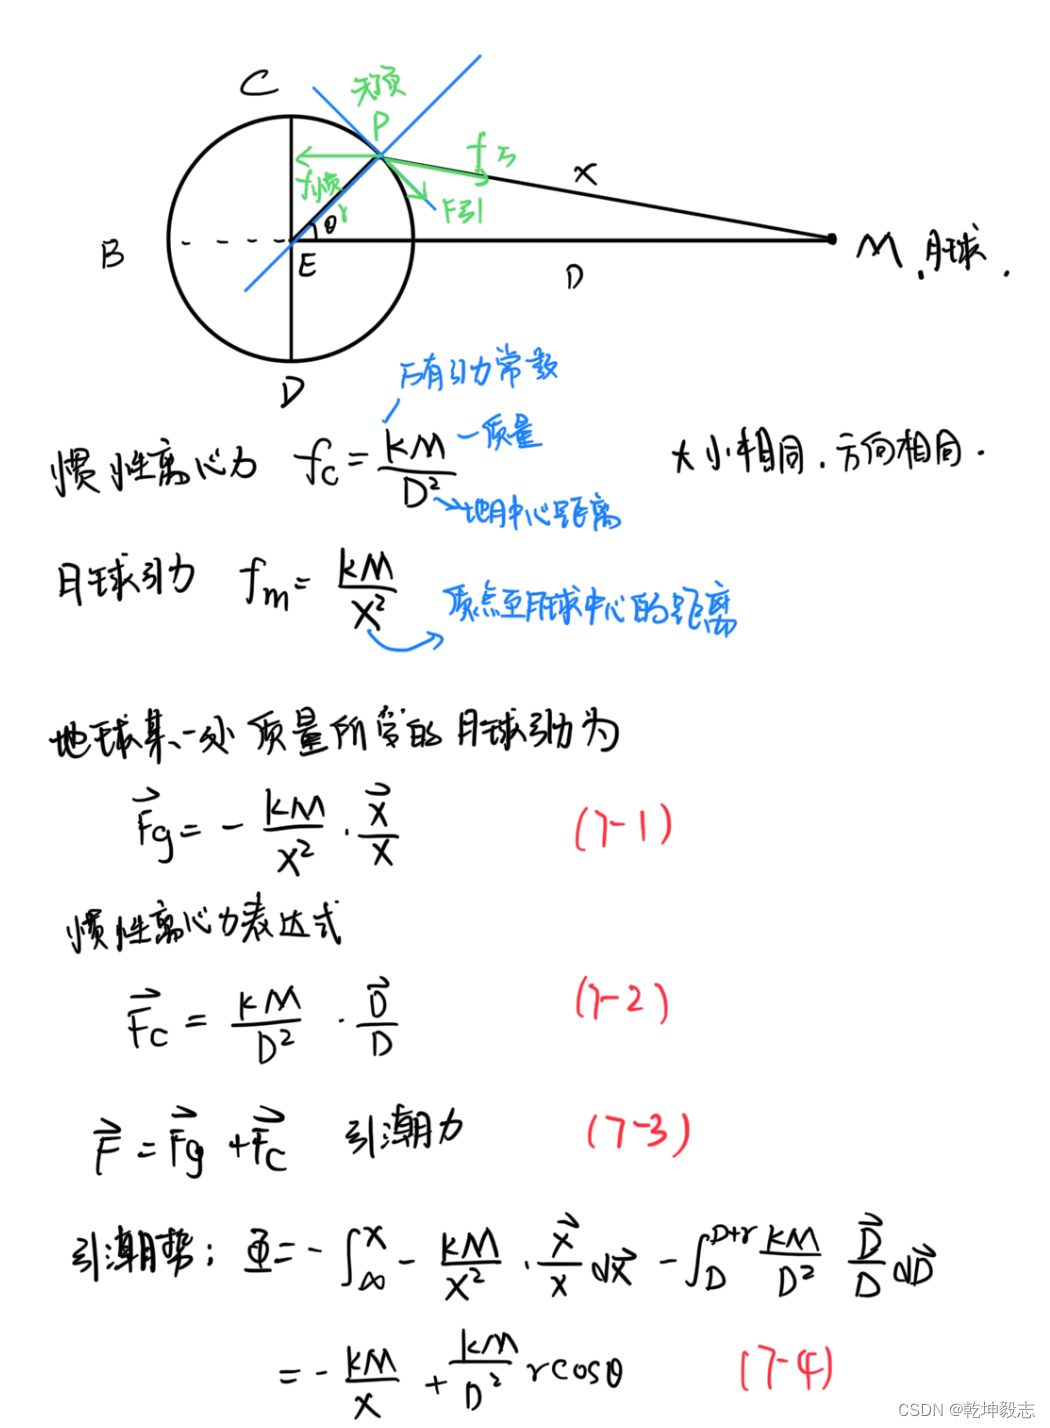 C
天顶
P
f万
x
f惯
r
θ
F引
B
E
D
M.月球.
D
万有引力常数
惯性离心力 fc = kM/D² 质量 大小相同.方向相同.
地月中心距离
月球引力 fm = kM/X²
质点至月球中心的距离
地球某一处质量所受的月球引力为
F⃗g = - kM/X² · X⃗/X (7-1)
惯性离心力表达式
F⃗c = kM/D² · D⃗/D (7-2)
F⃗ = F⃗g + F⃗c 引潮力 (7-3)
引潮势: Φ = - ∫_∞^X - kM/X² · X⃗/X dX⃗ - ∫_D^{D+r} kM/D² D⃗/D dD⃗
= - kM/X + kM/D² rcosθ (7-4)
CSDN @乾坤毅志